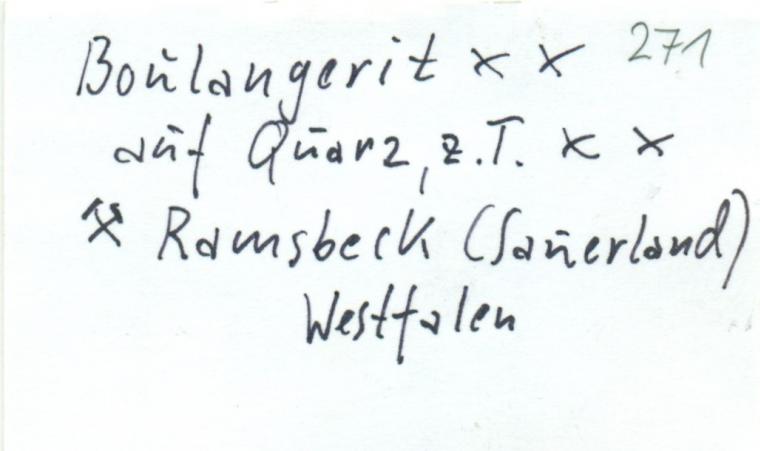 Boulangerit x x 271
auf Quarz, z.T. x x
⚒ Ramsbeck (Sauerland)
Westfalen